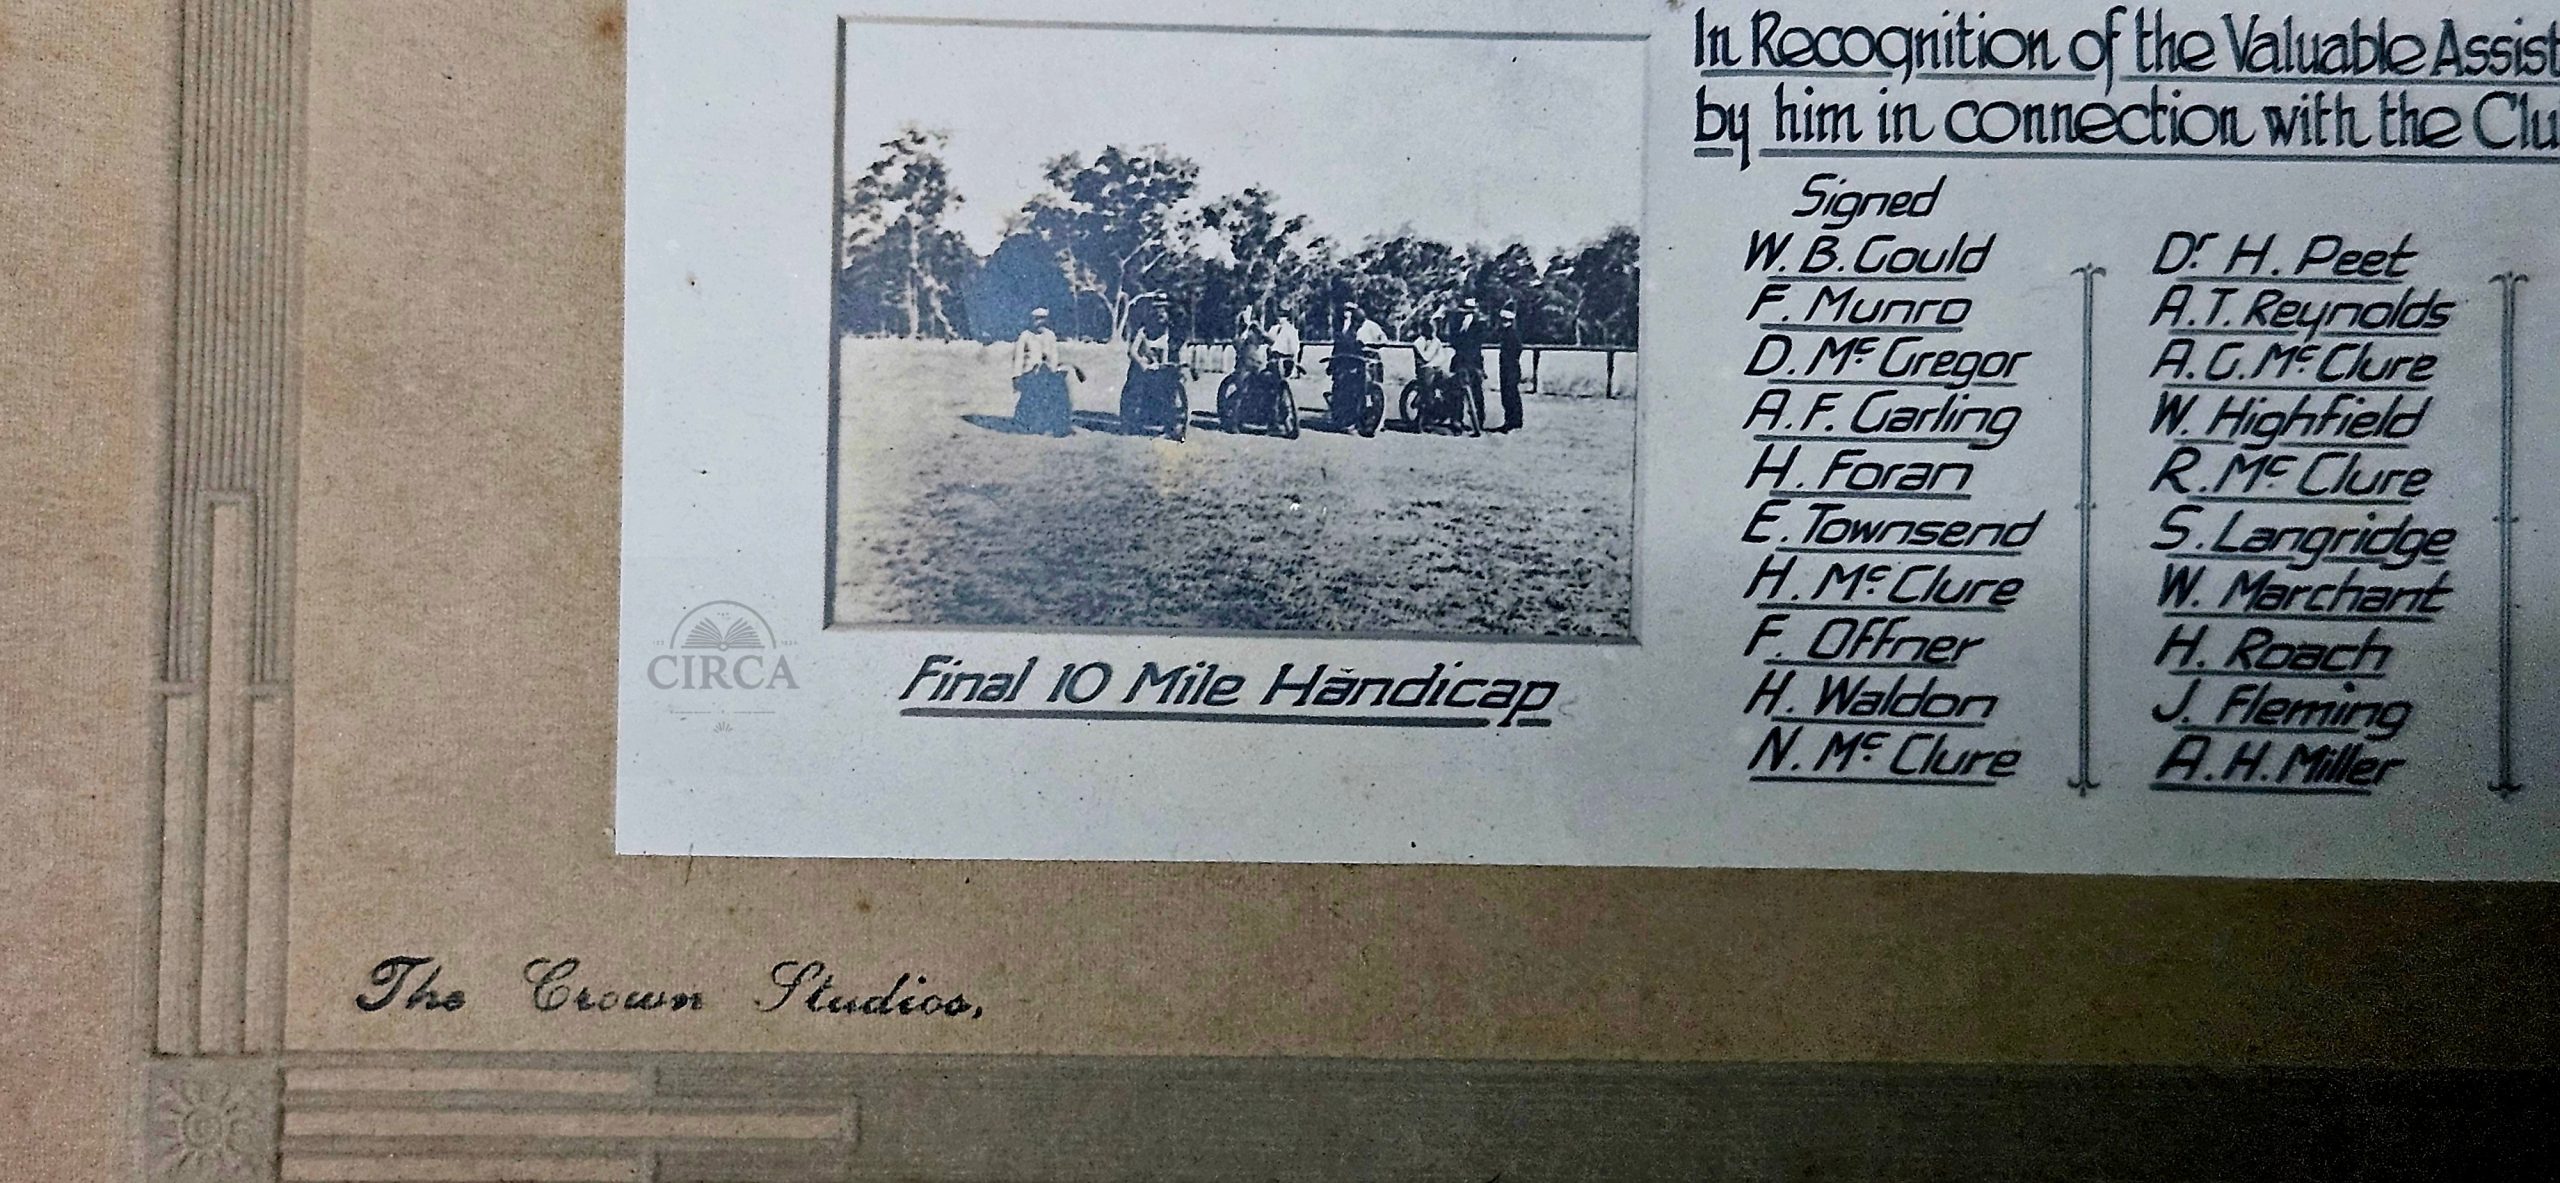 In Recognition of the Valuable Assist
by him in connection with the Clu
Signed
W. B. Gould
F. Munro
D. Mc Gregor
A. F. Garling
H. Foran
E. Townsend
H. Mc Clure
F. Offner
H. Waldon
N. Mc Clure
Dr H. Peet
A. T. Reynolds
A. G. Mc Clure
W. Highfield
R. Mc Clure
S. Langridge
W. Marchant
H. Roach
J. Fleming
A. H. Miller
Final 10 Mile Handicap
CIRCA
The Crown Studios.